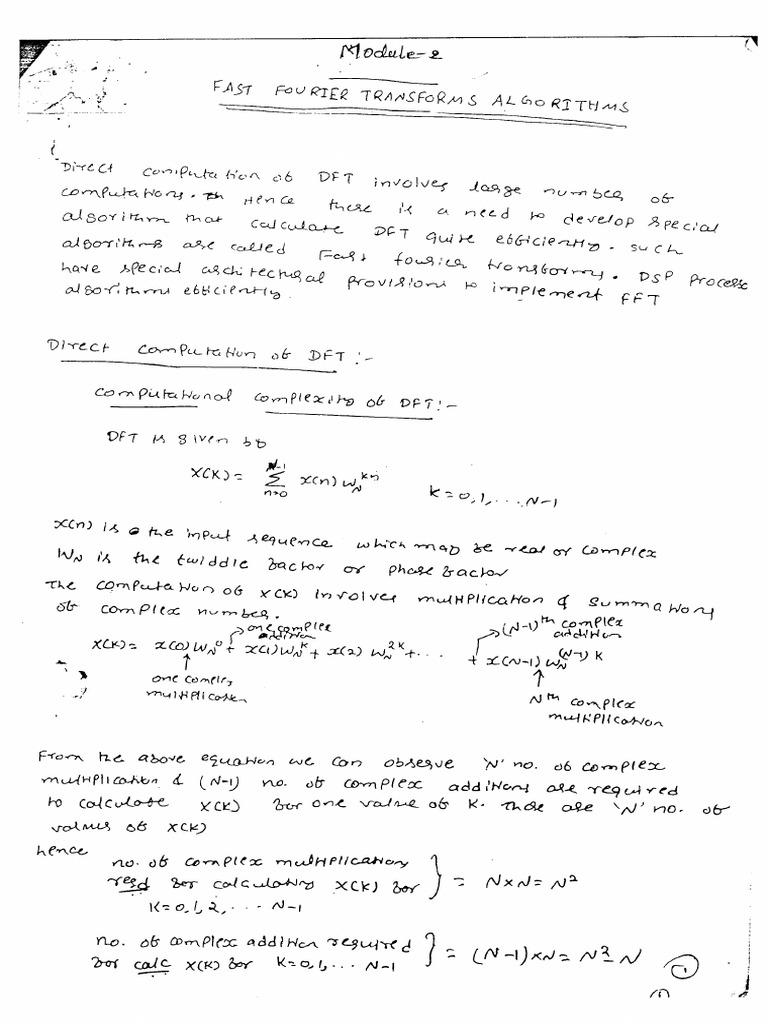 Module-2
FAST FOURIER TRANSFORMS ALGORITHMS
Direct computation of DFT involves large number of
computations. Hence there is a need to develop special
algorithm that calculate DFT quite efficiently. such
algorithms are called Fast fourier transforms. DSP process
have special architectural provisions to implement FFT
algorithms efficiently.
Direct computation of DFT :-
computational complexity of DFT:-
DFT is given by
X(K) = \sum_{n=0}^{N-1} x(n) W_N^{kn}    K = 0, 1, ... N-1
x(n) is the input sequence which may be real or complex
W_N is the twiddle factor or phase factor
The computation of X(K) involves multiplication & summation
of complex number.
one complex addition    (N-1)^{th} complex addition
X(K) = x(0) W_N^0 + x(1) W_N^k + x(2) W_N^{2k} + ... + x(N-1) W_N^{(N-1)k}
one complex multiplication    N^{th} complex multiplication
From the above equation we can observe 'N' no. of complex
multiplication & (N-1) no. of complex additions are required
to calculate X(K) for one value of K. There are 'N' no. of
values of X(K)
hence
no. of complex multiplication
reqd for calculating X(K) for } = N x N = N^2
K = 0, 1, 2, ... N-1
no. of complex addition required
for calc X(K) for K = 0, 1, ... N-1 } = (N-1) x N = N^2 - N
1